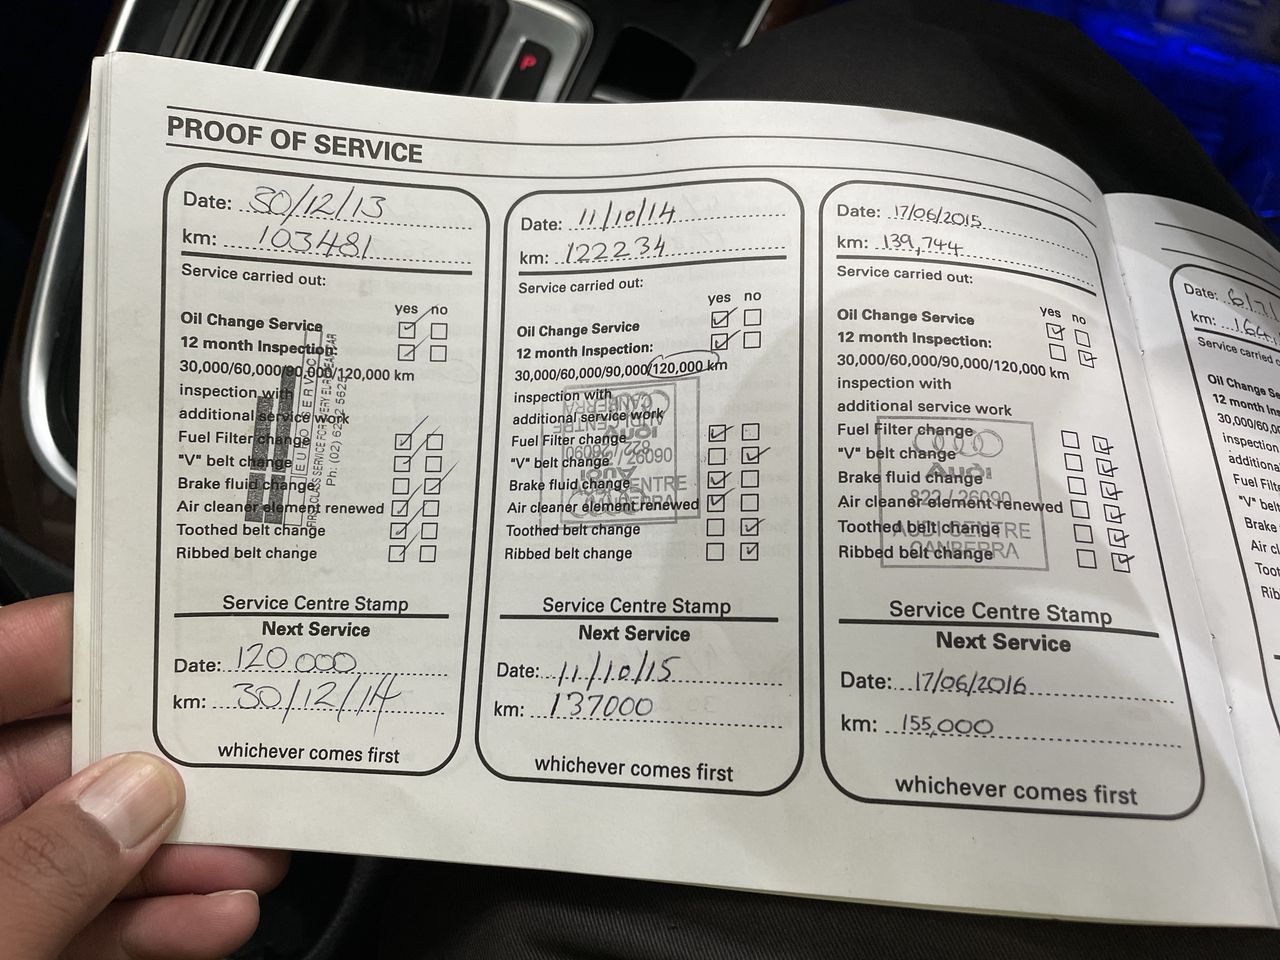 P
PROOF OF SERVICE
Date: 30/12/13
km: 103481
Service carried out:
yes no
Oil Change Service
12 month Inspection:
30,000/60,000/90,000/120,000 km
inspection with
additional service work
Fuel Filter change
"V" belt change
Brake fluid change
Air cleaner element renewed
Toothed belt change
Ribbed belt change
Service Centre Stamp
Next Service
Date: 120000
km: 30/12/14
whichever comes first
Date: 11/10/14
km: 122234
Service carried out:
yes no
Oil Change Service
12 month Inspection:
30,000/60,000/90,000/120,000 km
inspection with
additional service work
Fuel Filter change
"V" belt change
Brake fluid change
Air cleaner element renewed
Toothed belt change
Ribbed belt change
AUDI CENTRE
CANBERRA
Service Centre Stamp
Next Service
Date: 11/10/15
km: 137000
whichever comes first
Date: 17/06/2015
km: 139,744
Service carried out:
yes no
Oil Change Service
12 month Inspection:
30,000/60,000/90,000/120,000 km
inspection with
additional service work
Fuel Filter change
"V" belt change
Brake fluid change
Air cleaner element renewed
Toothed belt change
Ribbed belt change
Audi
822 / 26090
AUDI CENTRE
CANBERRA
Service Centre Stamp
Next Service
Date: 17/06/2016
km: 155,000
whichever comes first
Date:
km:
Service carried
Oil Change
12 month
inspection
Fuel
"V" belt
Brake